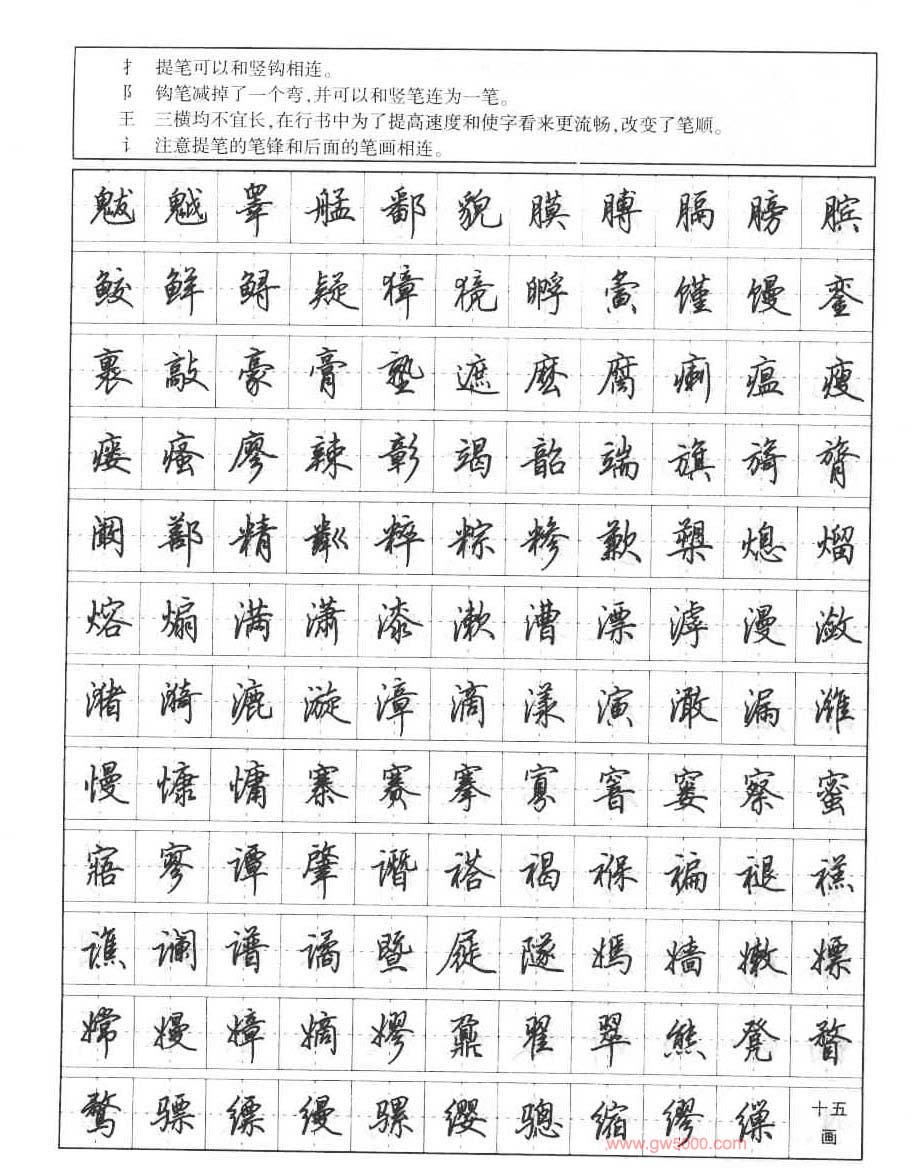 扌 提笔可以和竖钩相连。
阝 钩笔减掉了一个弯,并可以和竖笔连为一笔。
王 三横均不宜长,在行书中为了提高速度和使字看来更流畅,改变了笔顺。
讠 注意提笔的笔锋和后面的笔画相连。
魃 魆 睾 艋 鄱 貌 膜 膊 膈 膀 膑
鲛 鲜 鲟 疑 獐 獍 夤 馑 馒 銮
裹 敲 豪 膏 塾 遮 麽 腐 瘌 瘟 瘦
瘘 瘙 廖 辣 彰 竭 韶 端 旗 旖 膂
阚 鄯 精 粼 粹 粽 糁 歉 槊 熄 熘
熔 煽 满 潇 漆 漱 漕 漂 滹 漫 潋
潴 漪 漉 漩 漳 滴 漾 演 澉 漏 潍
慢 慷 慵 寨 赛 搴 寡 窨 窭 察 蜜
寤 寥 谭 肇 谮 褡 褐 褓 褊 褪 禚
谯 谰 谱 谲 暨 屣 隧 嫣 嫱 嫩 嫖
嫦 嫚 嫜 嫡 嫪 鼐 翟 翠 熊 凳 瞀
鹜 骠 缥 缦 骡 缨 骢 缩 缪 缫 十五
画
www.gw5000.com